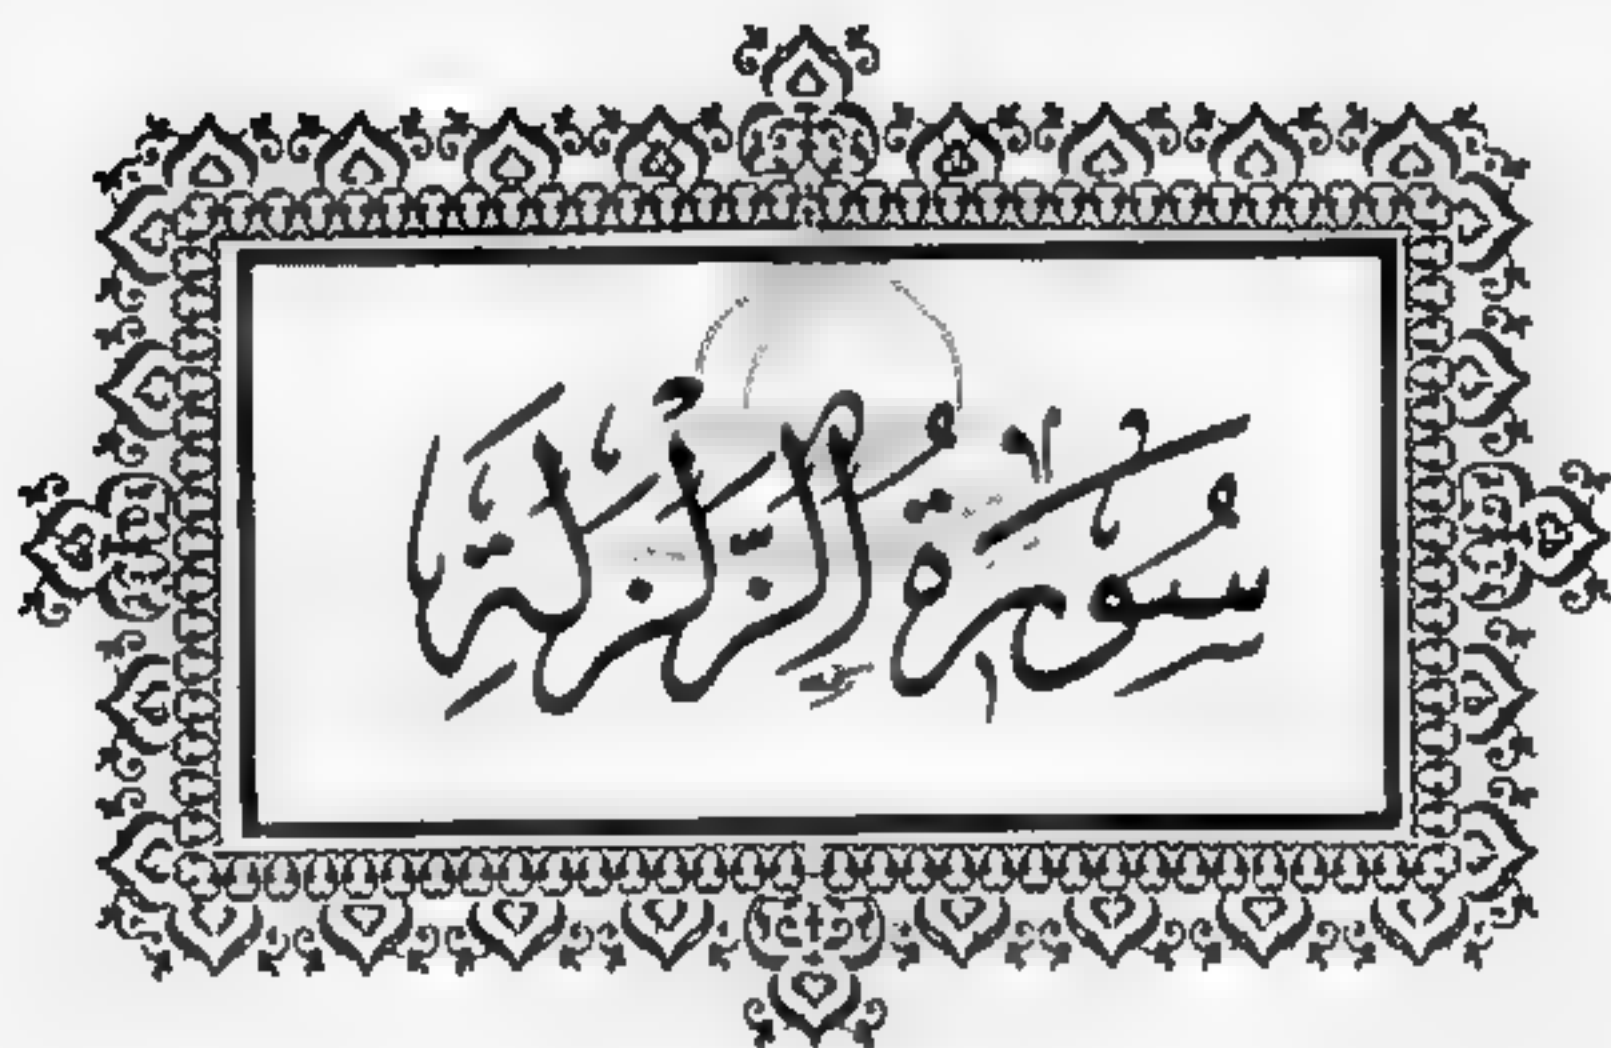 سُورَةُ الزَّلْزَلَةِ